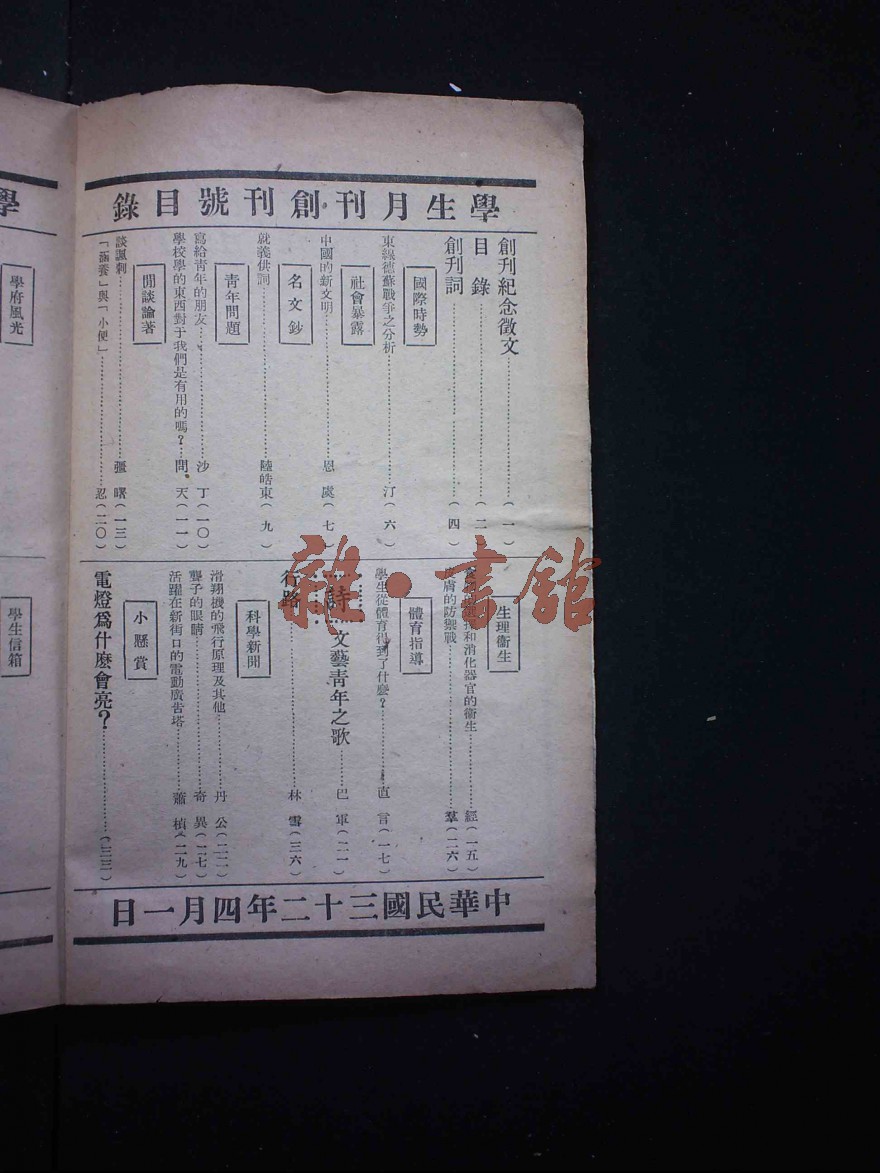 學生月刊創刊號目錄
創刊紀念徵文……(一)
目錄……(二)
創刊詞……(四)
國際時勢
東線德蘇戰爭之分析……汀(六)
社會暴露
中國的新文明……恩虔(七)
名文鈔
就義供詞……陸皓東(九)
青年問題
寫給青年的朋友……沙丁(一〇)
學校學的東西對于我們是有用的嗎?……問天(一一)
閒談論著
談諷刺……張曙(一三)
「涵養」與「小便」……忍(二〇)
生理衞生
和消化器官的衞生……經(一五)
膚的防禦戰……羣(二六)
體育指導
學生從體育得到了什麼?……直言(一七)
……詩……文藝青年之歌……巴軍(二一)
行路……林雪(三六)
科學新聞
滑翔機的飛行原理及其他……丹公(二二)
聾子的眼睛……奇異(二七)
活躍在新街口的電動廣告塔……蕭楨(二九)
小懸賞
電燈爲什麼會亮?……(三三)
中華民國三十二年四月一日
學
學府風光
學生信箱
雜·書館